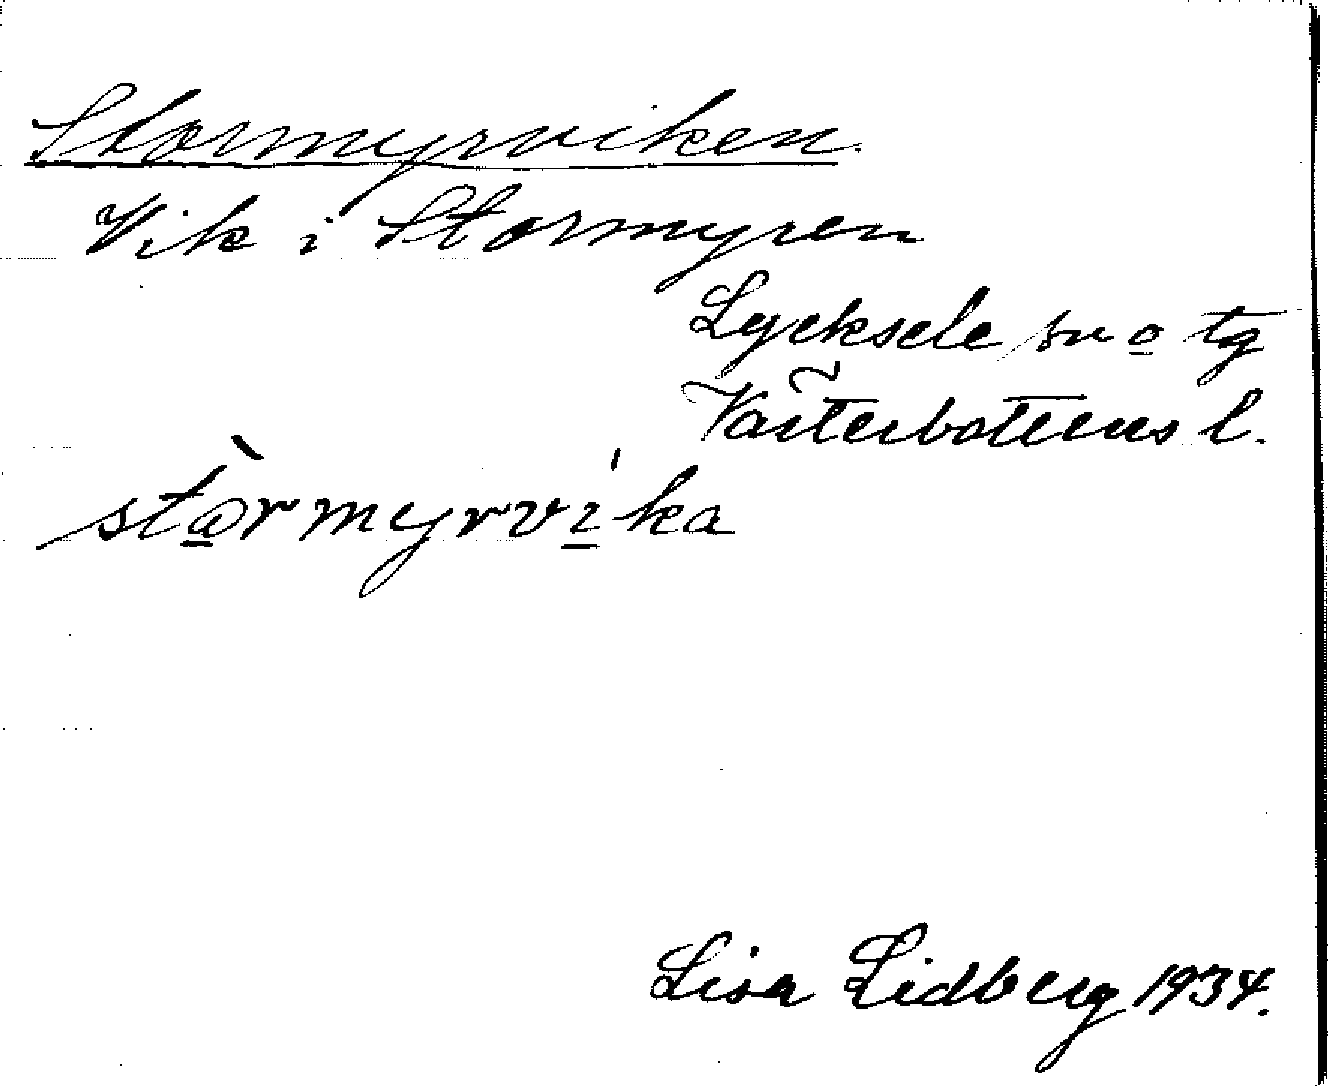 Stormyrviken.
Vik i Stormyren
Lycksele sn o tg
Västerbottens l.
stò̱rmyrvi̱'ka
Lisa Lidberg 1934.